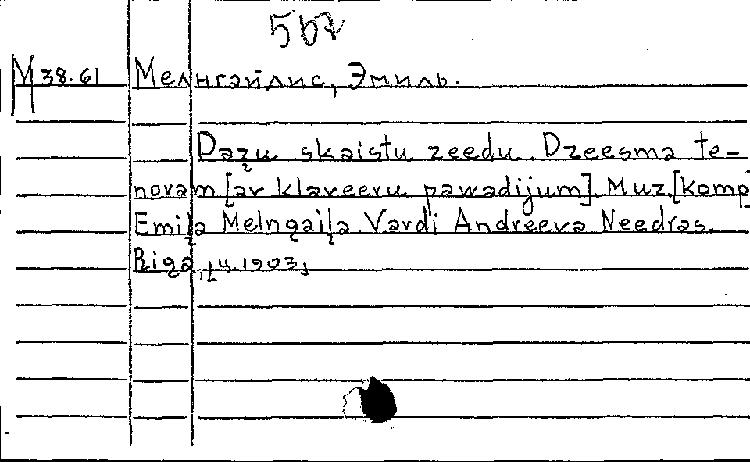 567
M 38.61 Мелнгайлис, Эмиль.
Dazu skaistu zeedu. Dzeesma te-
noram [ar klaveeru pawadijum]. Muz. [komp
Emiļa Melngaiļa. Vardi Andreeva Needras.
Riga,